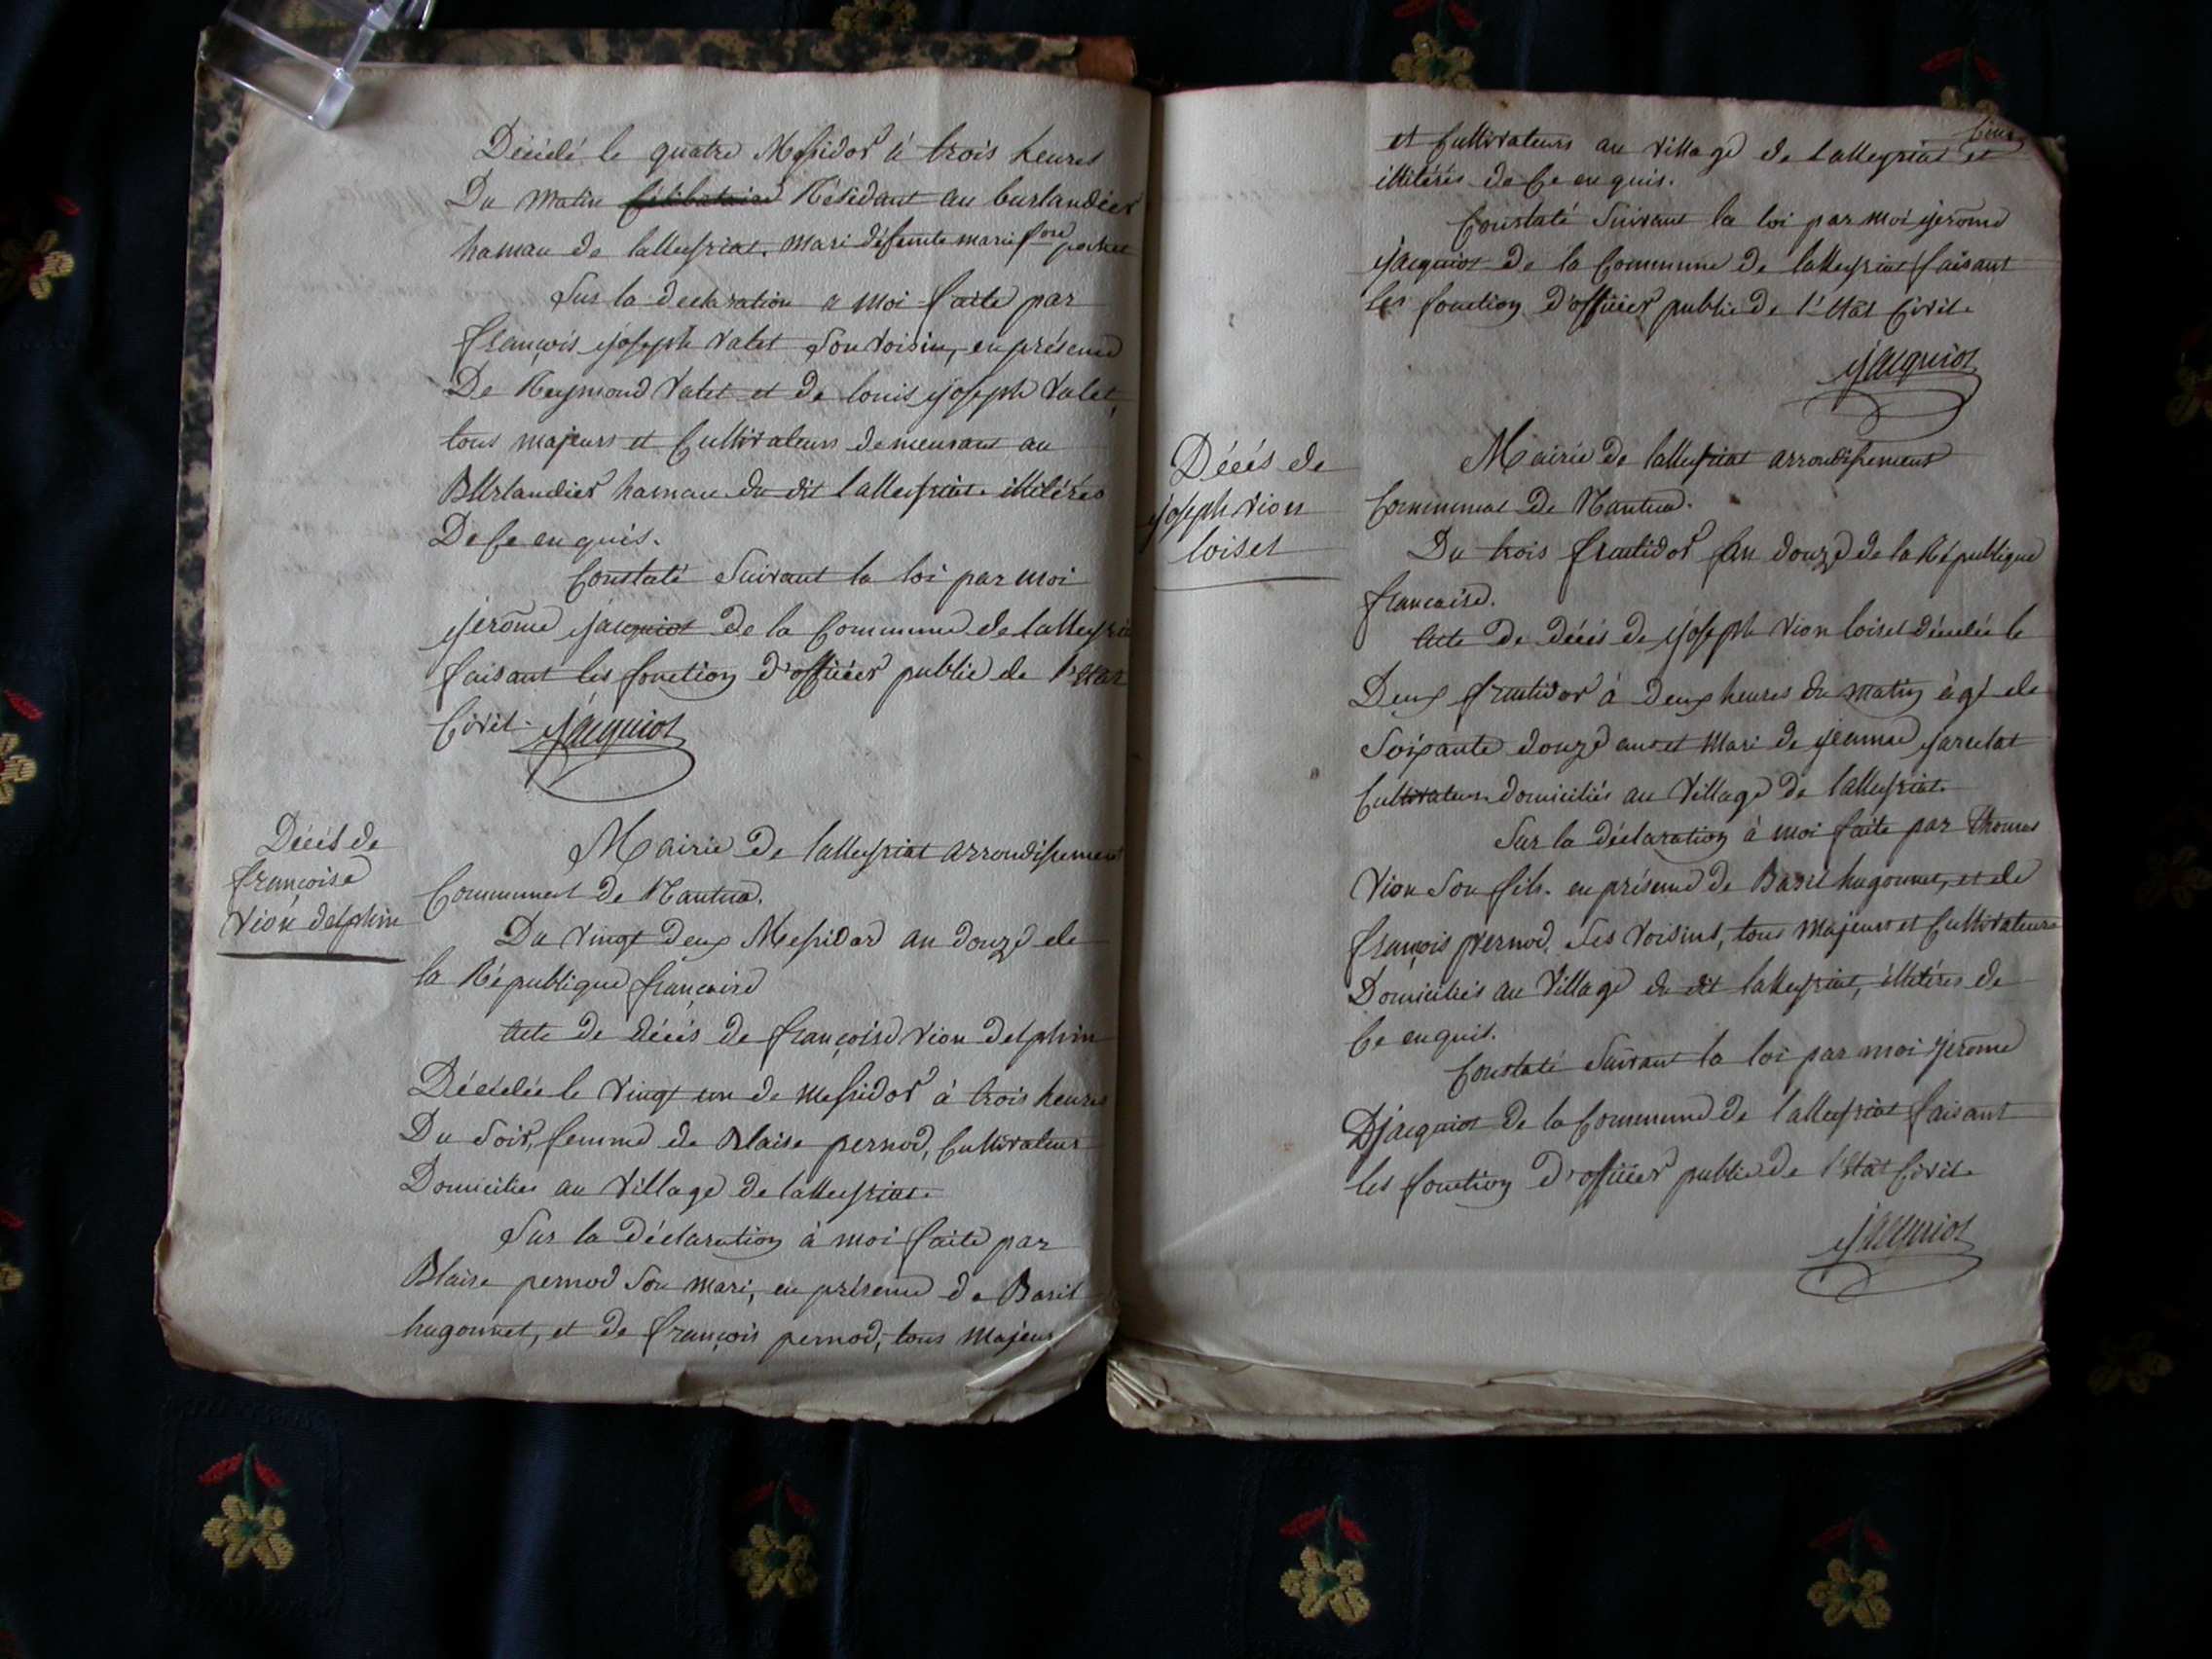 Décédé le quatre Messidor à trois heures
Du matin Célibataire Résidant au burlandier
hamau de lalleyriat. mari défeunte marie
Sur la declaration a moi faite par
françois joseph Valet Son Voisin, en présence
De Reymond Valet et de louis joseph Valet,
tous majeurs et Cultivateurs demeurant au
Burlandier hamau du dit lalleyriat. illitérés
De Ce enquis.
Constaté Suivant la loi par moi
jerôme jacquiot de la Commune de lalleyria
faisant les fonction d'officier public de l'Etat
Civil. jacquiot
Décés de
françoise
Vion delphin
Mairie de lalleyriat arrondissement
Communal de Nantua.
Du Vingt deux Messidor an douze de
la République françaire
Acte de décés de françoise Vion delphin
Décédée le Vingt un de messidor à trois heures
Du Soir, femme de Blaise pernod, Cultivateur
Domiciliés au Village de lalleyriat.
Sur la déclaration à moi faite par
Blaise pernod Son mari, en présence de Basil
hugonnet, et de françois pernod, tous majeur
et Cultivateurs au village de lalleyriat et
illitérés de Ce enquis.
Constaté Suivant la loi par moi jerôme
jacquiot de la Commune de lalleyriat faisant
les fonction d'officier public de l'état Civil.
jacquiot
Décés de
joseph Vion
loiset
Mairie de lalleyriat arrondissement
Communal de Nantua.
Du trois fructidor an douze de la République
francaise.
Acte de décés de joseph Vion loiset décédée le
Deux fructidor à deux heures du matin âgé de
Soixante douze ans et Mari de jeanne
Cultivateurs domiciliés au Village de lalleyriat.
Sur la déclaration à moi faite par thomas
Vion Son fils. en présence de Basil hugonnet, et de
françois pernod, Ses Voisins, tous Majeurs et Cultivateurs
Domiciliés au Village du dit lalleyriat, illitérés de
Ce enquis.
Constaté Suivant la loi par moi jerôme
Djacquiot de la Commune de lalleyriat faisant
les fonction d'officier public de l'état Civil.
jacquiot